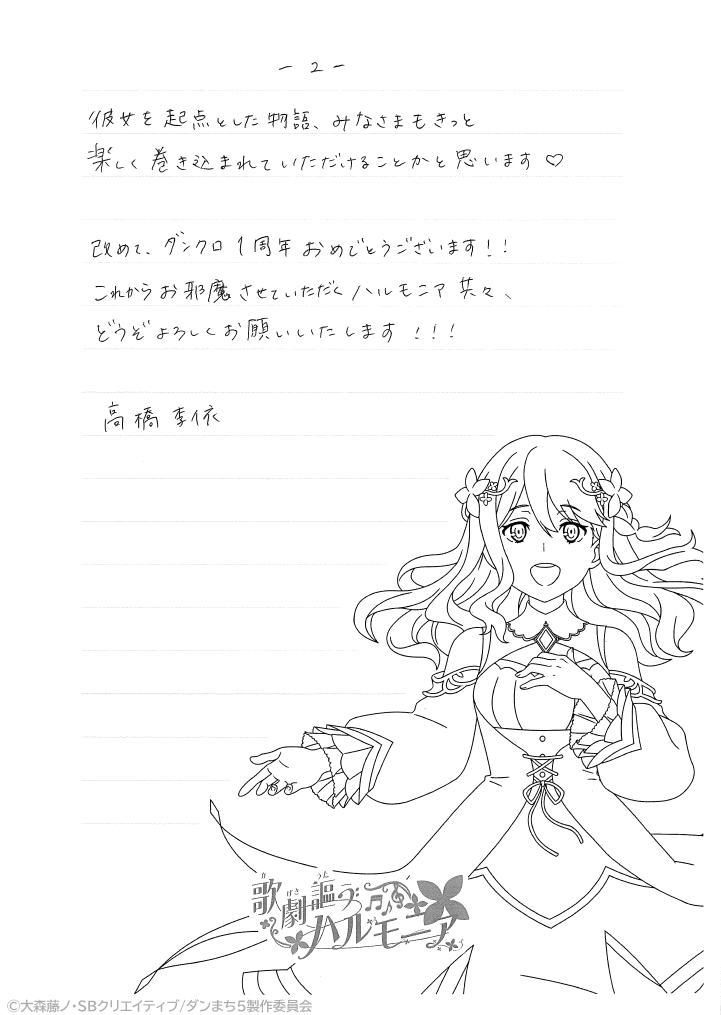 - 2 -
彼女を起点とした物語、みなさまもきっと
楽しく巻き込まれていただけることかと思います♡
改めて、ダンクロ1周年おめでとうございます!!
これからお邪魔させていただくハルモニア共々、
どうぞよろしくお願いいたします!!!
高橋李依
歌劇謳う
かげきうた
ハルモニア
©大森藤ノ・SBクリエイティブ/ダンまち5製作委員会